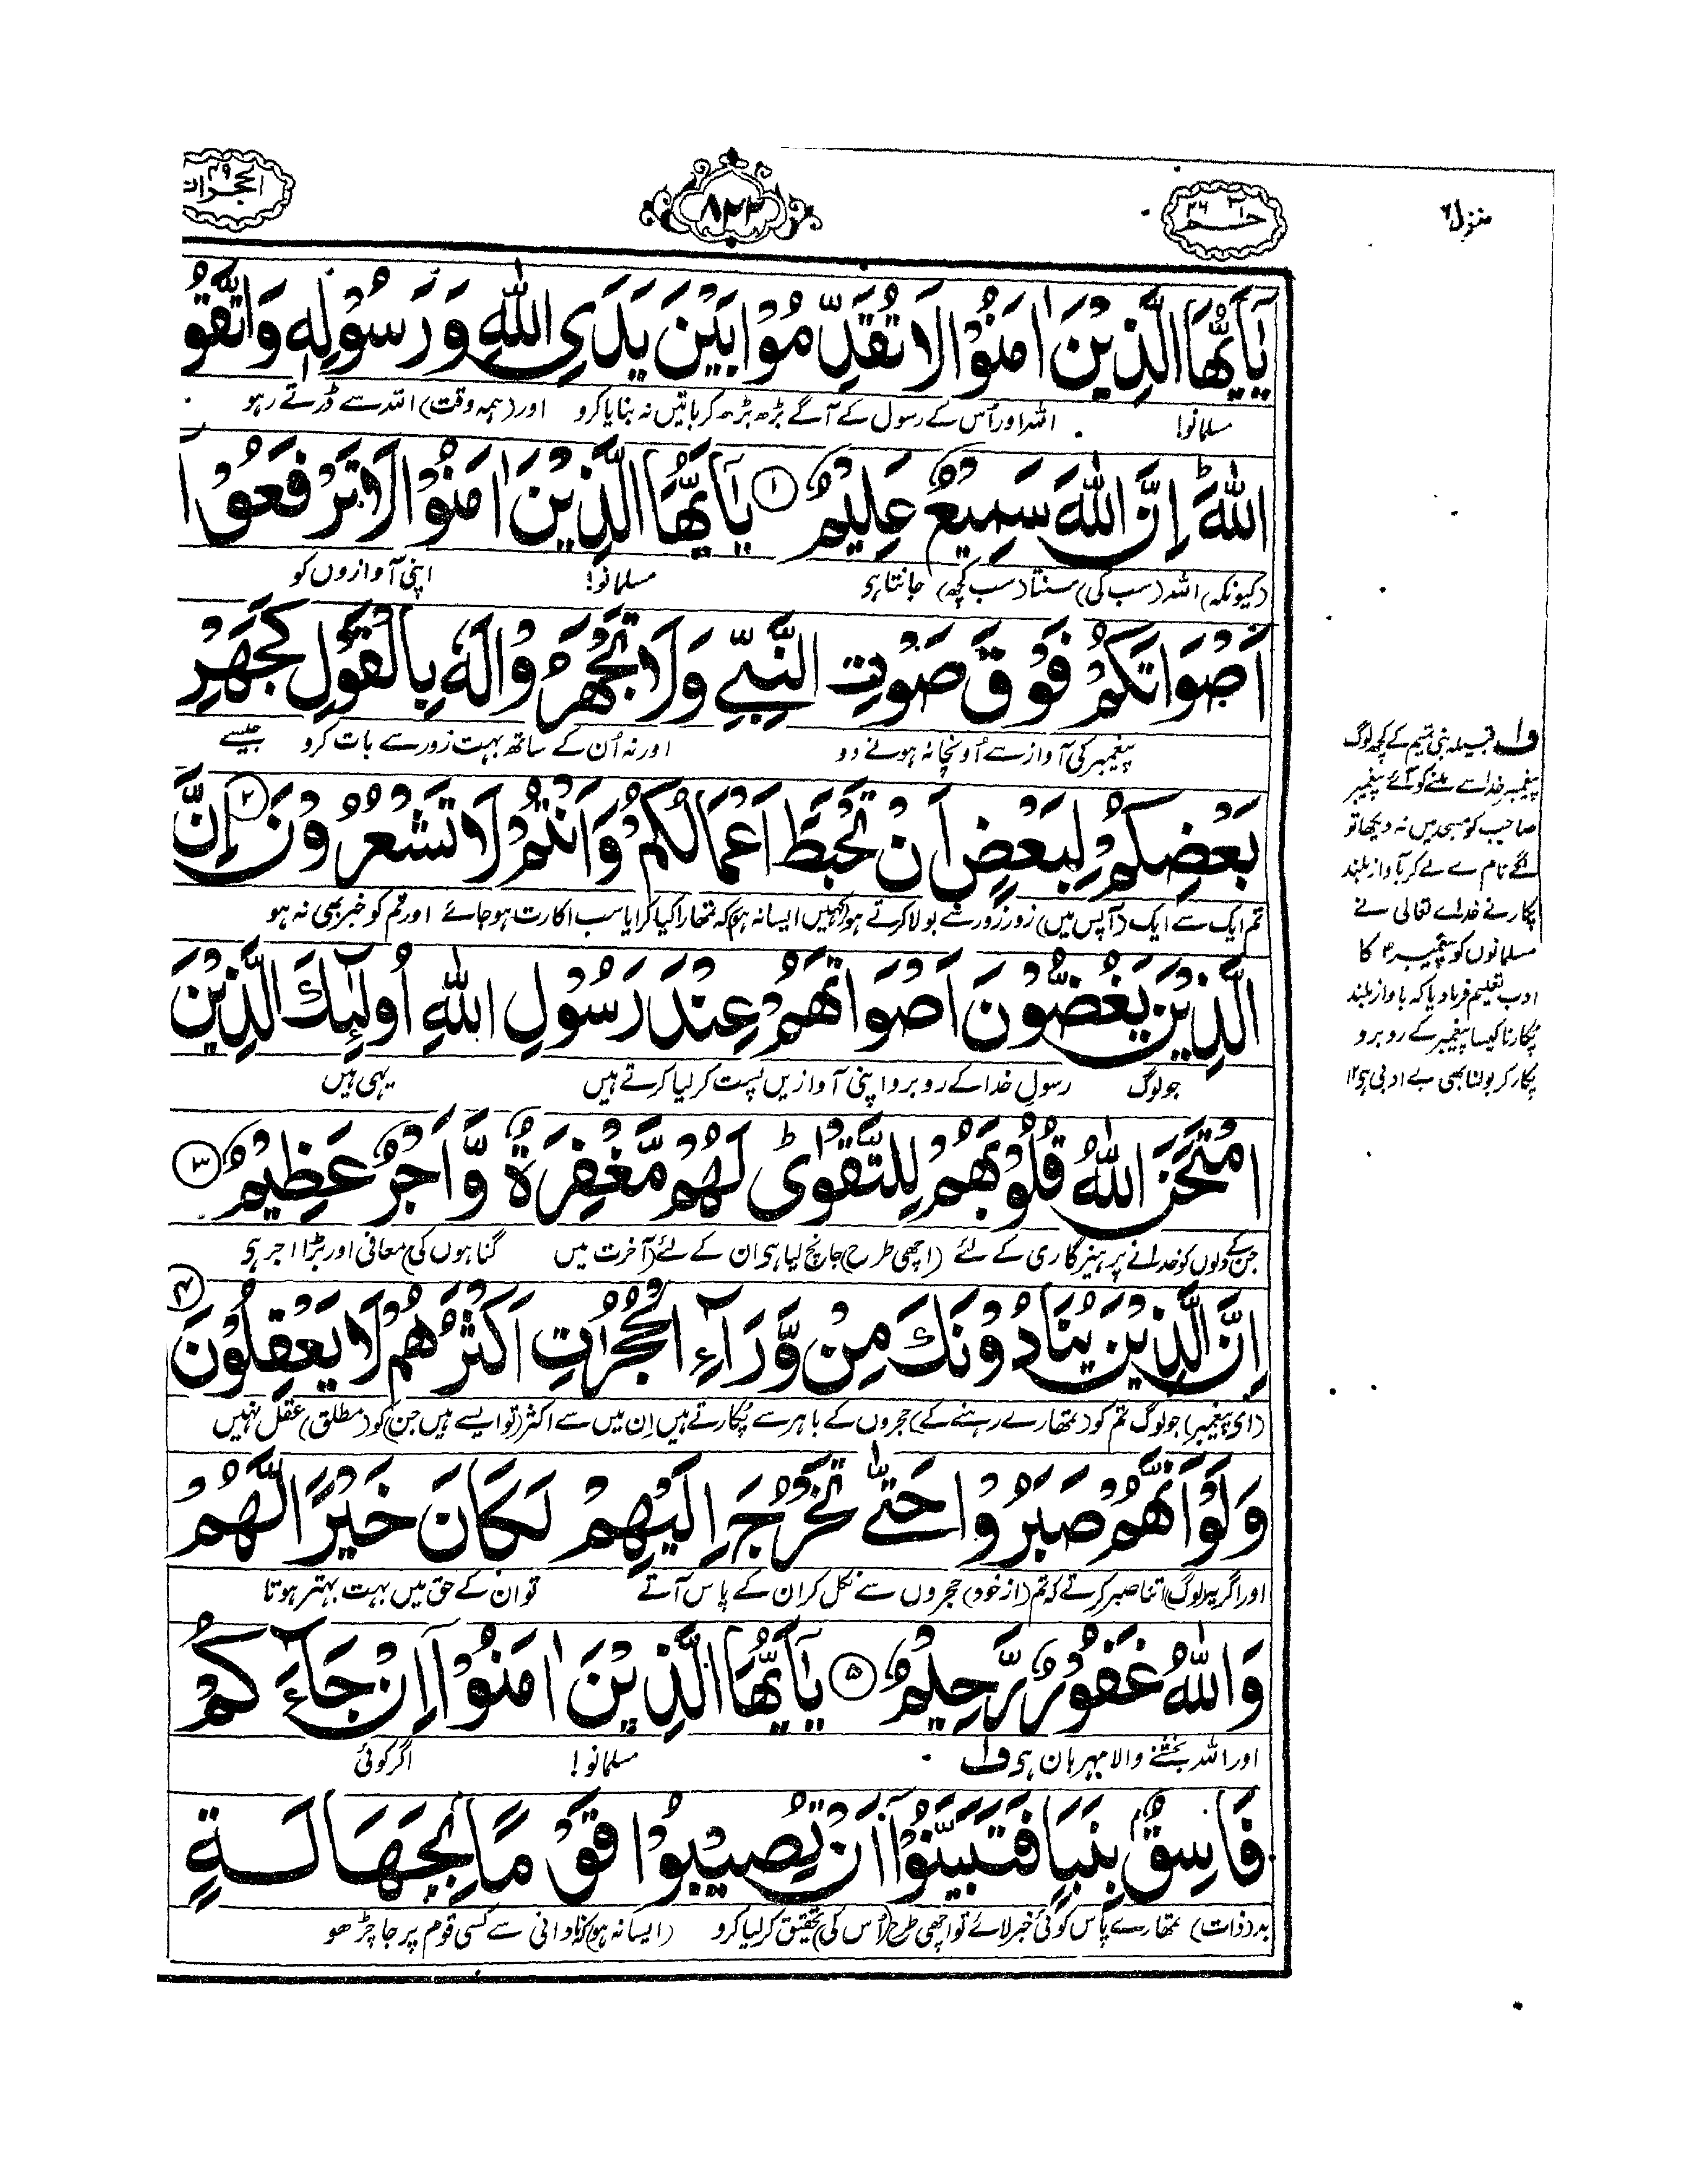 منزل ۶
حٰمٓ ۲۶
۸۲۳
الحجرات ۴۹
يٰۤاَيُّهَا الَّذِيْنَ اٰمَنُوْا لَا تُقَدِّمُوْا بَيْنَ يَدَيِ اللّٰهِ وَ رَسُوْلِهٖ وَاتَّقُوا
مسلمانو! اللہ اور اُس کے رسول کے آگے بڑھ بڑھ کر باتیں نہ بنایا کرو اور (ہمہ وقت) اللہ سے ڈرتے رہو
اللّٰهَ ؕ اِنَّ اللّٰهَ سَمِيْعٌ عَلِيْمٌ ۝۱ يٰۤاَيُّهَا الَّذِيْنَ اٰمَنُوْا لَا تَرْفَعُوْۤا
(کیونکہ) اللہ (سب کی) سنتا (سب کچھ) جانتا ہی مسلمانو! اپنی آوازوں کو
اَصْوَاتَكُمْ فَوْقَ صَوْتِ النَّبِيِّ وَلَا تَجْهَرُوْا لَهٗ بِالْقَوْلِ كَجَهْرِ
پیغمبر کی آواز سے اُونچا نہ ہونے دو اور نہ اُن کے ساتھ بہت زور سے بات کرو جیسے
بَعْضِكُمْ لِبَعْضٍ اَنْ تَحْبَطَ اَعْمَالُكُمْ وَاَنْتُمْ لَا تَشْعُرُوْنَ ۝۲ اِنَّ
تم ایک سے ایک (آپس میں) زور زور سے بولا کرتے ہو (کہیں ایسا نہ ہو) کہ تمھارا کیا کرایا سب اکارت ہو جائے اور تم کو خبر بھی نہ ہو
الَّذِيْنَ يَغُضُّوْنَ اَصْوَاتَهُمْ عِنْدَ رَسُوْلِ اللّٰهِ اُولٰٓئِكَ الَّذِيْنَ
جو لوگ رسولِ خدا کے روبرو اپنی آوازیں پست کر لیا کرتے ہیں یہی ہیں
امْتَحَنَ اللّٰهُ قُلُوْبَهُمْ لِلتَّقْوٰى ؕ لَهُمْ مَّغْفِرَةٌ وَّ اَجْرٌ عَظِيْمٌ ۝۳
جن کے دلوں کو خدا نے پرہیزگاری کے لئے (اچھی طرح) جانچ لیا ہی ان کے لئے (آخرت میں گناہوں کی) معافی اور بڑا اجر ہی
اِنَّ الَّذِيْنَ يُنَادُوْنَكَ مِنْ وَّرَآءِ الْحُجُرٰتِ اَكْثَرُهُمْ لَا يَعْقِلُوْنَ ۝۴
(ای پیغمبر) جو لوگ تم کو (تمھارے رہنے کے) حجروں کے باہر سے پُکارتے ہیں اِن میں سے اکثر (تو ایسے ہیں جن) کو (مطلق) عقل نہیں
وَلَوْ اَنَّهُمْ صَبَرُوْا حَتّٰى تَخْرُجَ اِلَيْهِمْ لَكَانَ خَيْرًا لَّهُمْ
اور اگر یہ (لوگ) اتنا صبر کرتے کہ تم (از خود) حجروں سے نکل کر ان کے پاس آتے تو ان کے حق میں بہت بہتر ہوتا
وَاللّٰهُ غَفُوْرٌ رَّحِيْمٌ ۝۵ يٰۤاَيُّهَا الَّذِيْنَ اٰمَنُوْۤا اِنْ جَآءَكُمْ
اور اللہ بخشنے والا مہربان ہی ف۱ مسلمانو! اگر کوئی
فَاسِقٌۢ بِنَبَاٍ فَتَبَيَّنُوْۤا اَنْ تُصِيْبُوْا قَوْمًۢا بِجَهَالَةٍ
بد (ذات) تمھارے پاس کوئی خبر لائے تو اچھی طرح (اُس کی) تحقیق کر لیا کرو (ایسا نہ ہو) کہ نادانی سے کسی قوم پر جا چڑھو
ف۱ قبیلہ بنی تمیم کے کچھ لوگ
پیغمبر خدا سے ملنے کو آئے پیغمبر
صاحب کو مسجد میں نہ دیکھا تو
لگے نام لے لے کر بآواز بلند
پکارنے خداے تعالی نے
مسلمانوں کو پیغمبر کا
ادب تعلیم فرما دیا کہ بآواز بلند
پُکارنا کیسا پیغمبر کے روبرو
پکار کر بولنا بھی بے ادبی ہی ۱۲